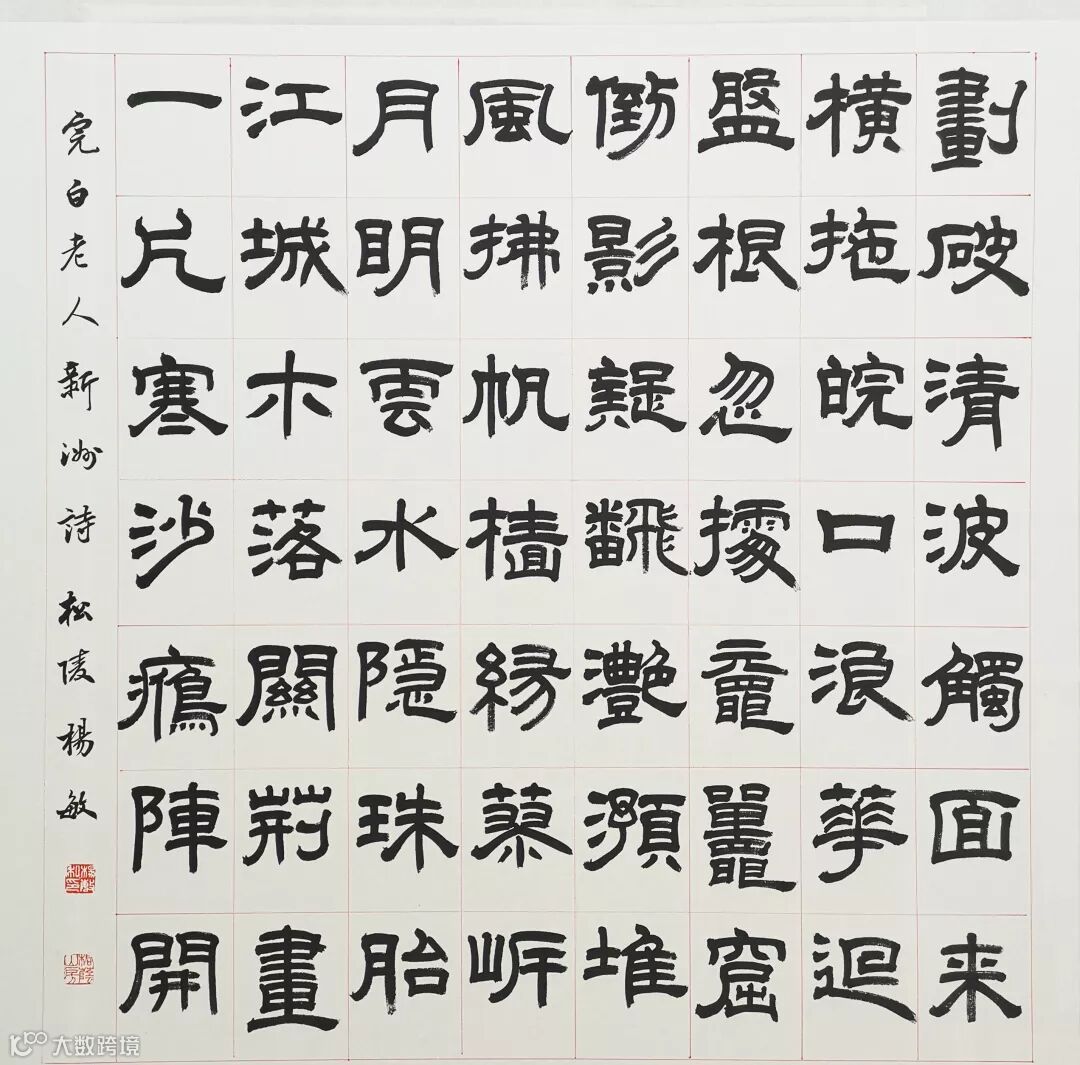 劃破清波觸面来
橫拖皖口浪華迴
盤根忽據黿鼉窟
倒影疑飜灩澦堆
風拂帆檣緣蓼岸
月明雲水隐珠胎
江城木落關荊畫
一片寒沙鴈陣開
完白老人新洲詩 松陵楊敏
大数跨境